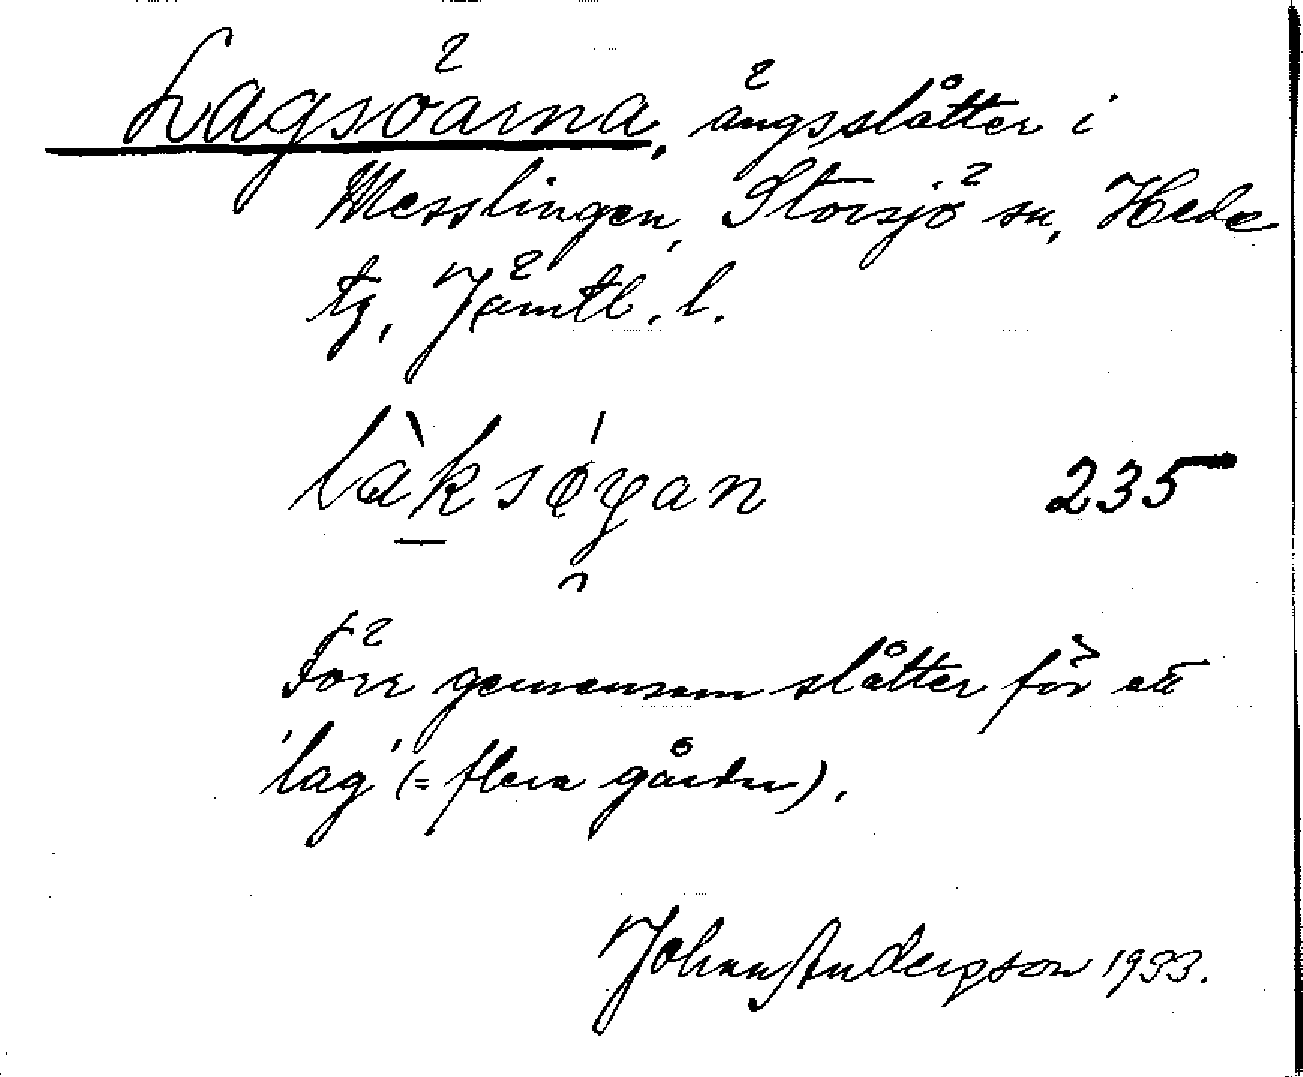 Lagsöarna, ängsslåtter i
Messlingen, Storsjö sn, Hede
tg, Jämtl. l.
làksǿyan 235
Förr gemensam slåtter för ett
'lag' (= flera gårdar).
Johan Andersson 1933.